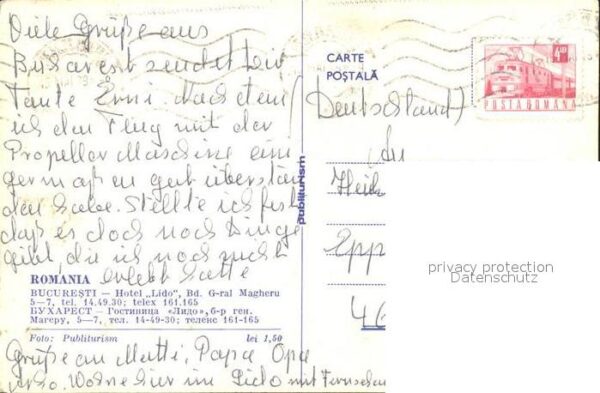 Viele Grüße aus
Bukarest sendet Dir
Tante Erni. Nachdem
ich den Flug mit der
Propeller Maschine eini
germaßen gut überstan
den habe. Stellte ich fest
daß es doch noch Dinge
gibt, die ich noch nicht
erlebt hatte
ROMANIA
BUCUREŞTI — Hotel „Lido”, Bd. G-ral Magheru
5—7, tel. 14.49.30; telex 161.165
БУХАРЕСТ — Гостиница «Лидо», б-р ген.
Магеру, 5—7, тел. 14-49-30; телекс 161-165
Foto: Publiturism lei 1,50
Grüße an Mutti, Papa Opa
Wohne hier im Lido mit Fernseh
publiturism
CARTE
POŞTALĂ
4,80
POSTA ROMANA
(Deutschland)
Epp
privacy protection
Datenschutz